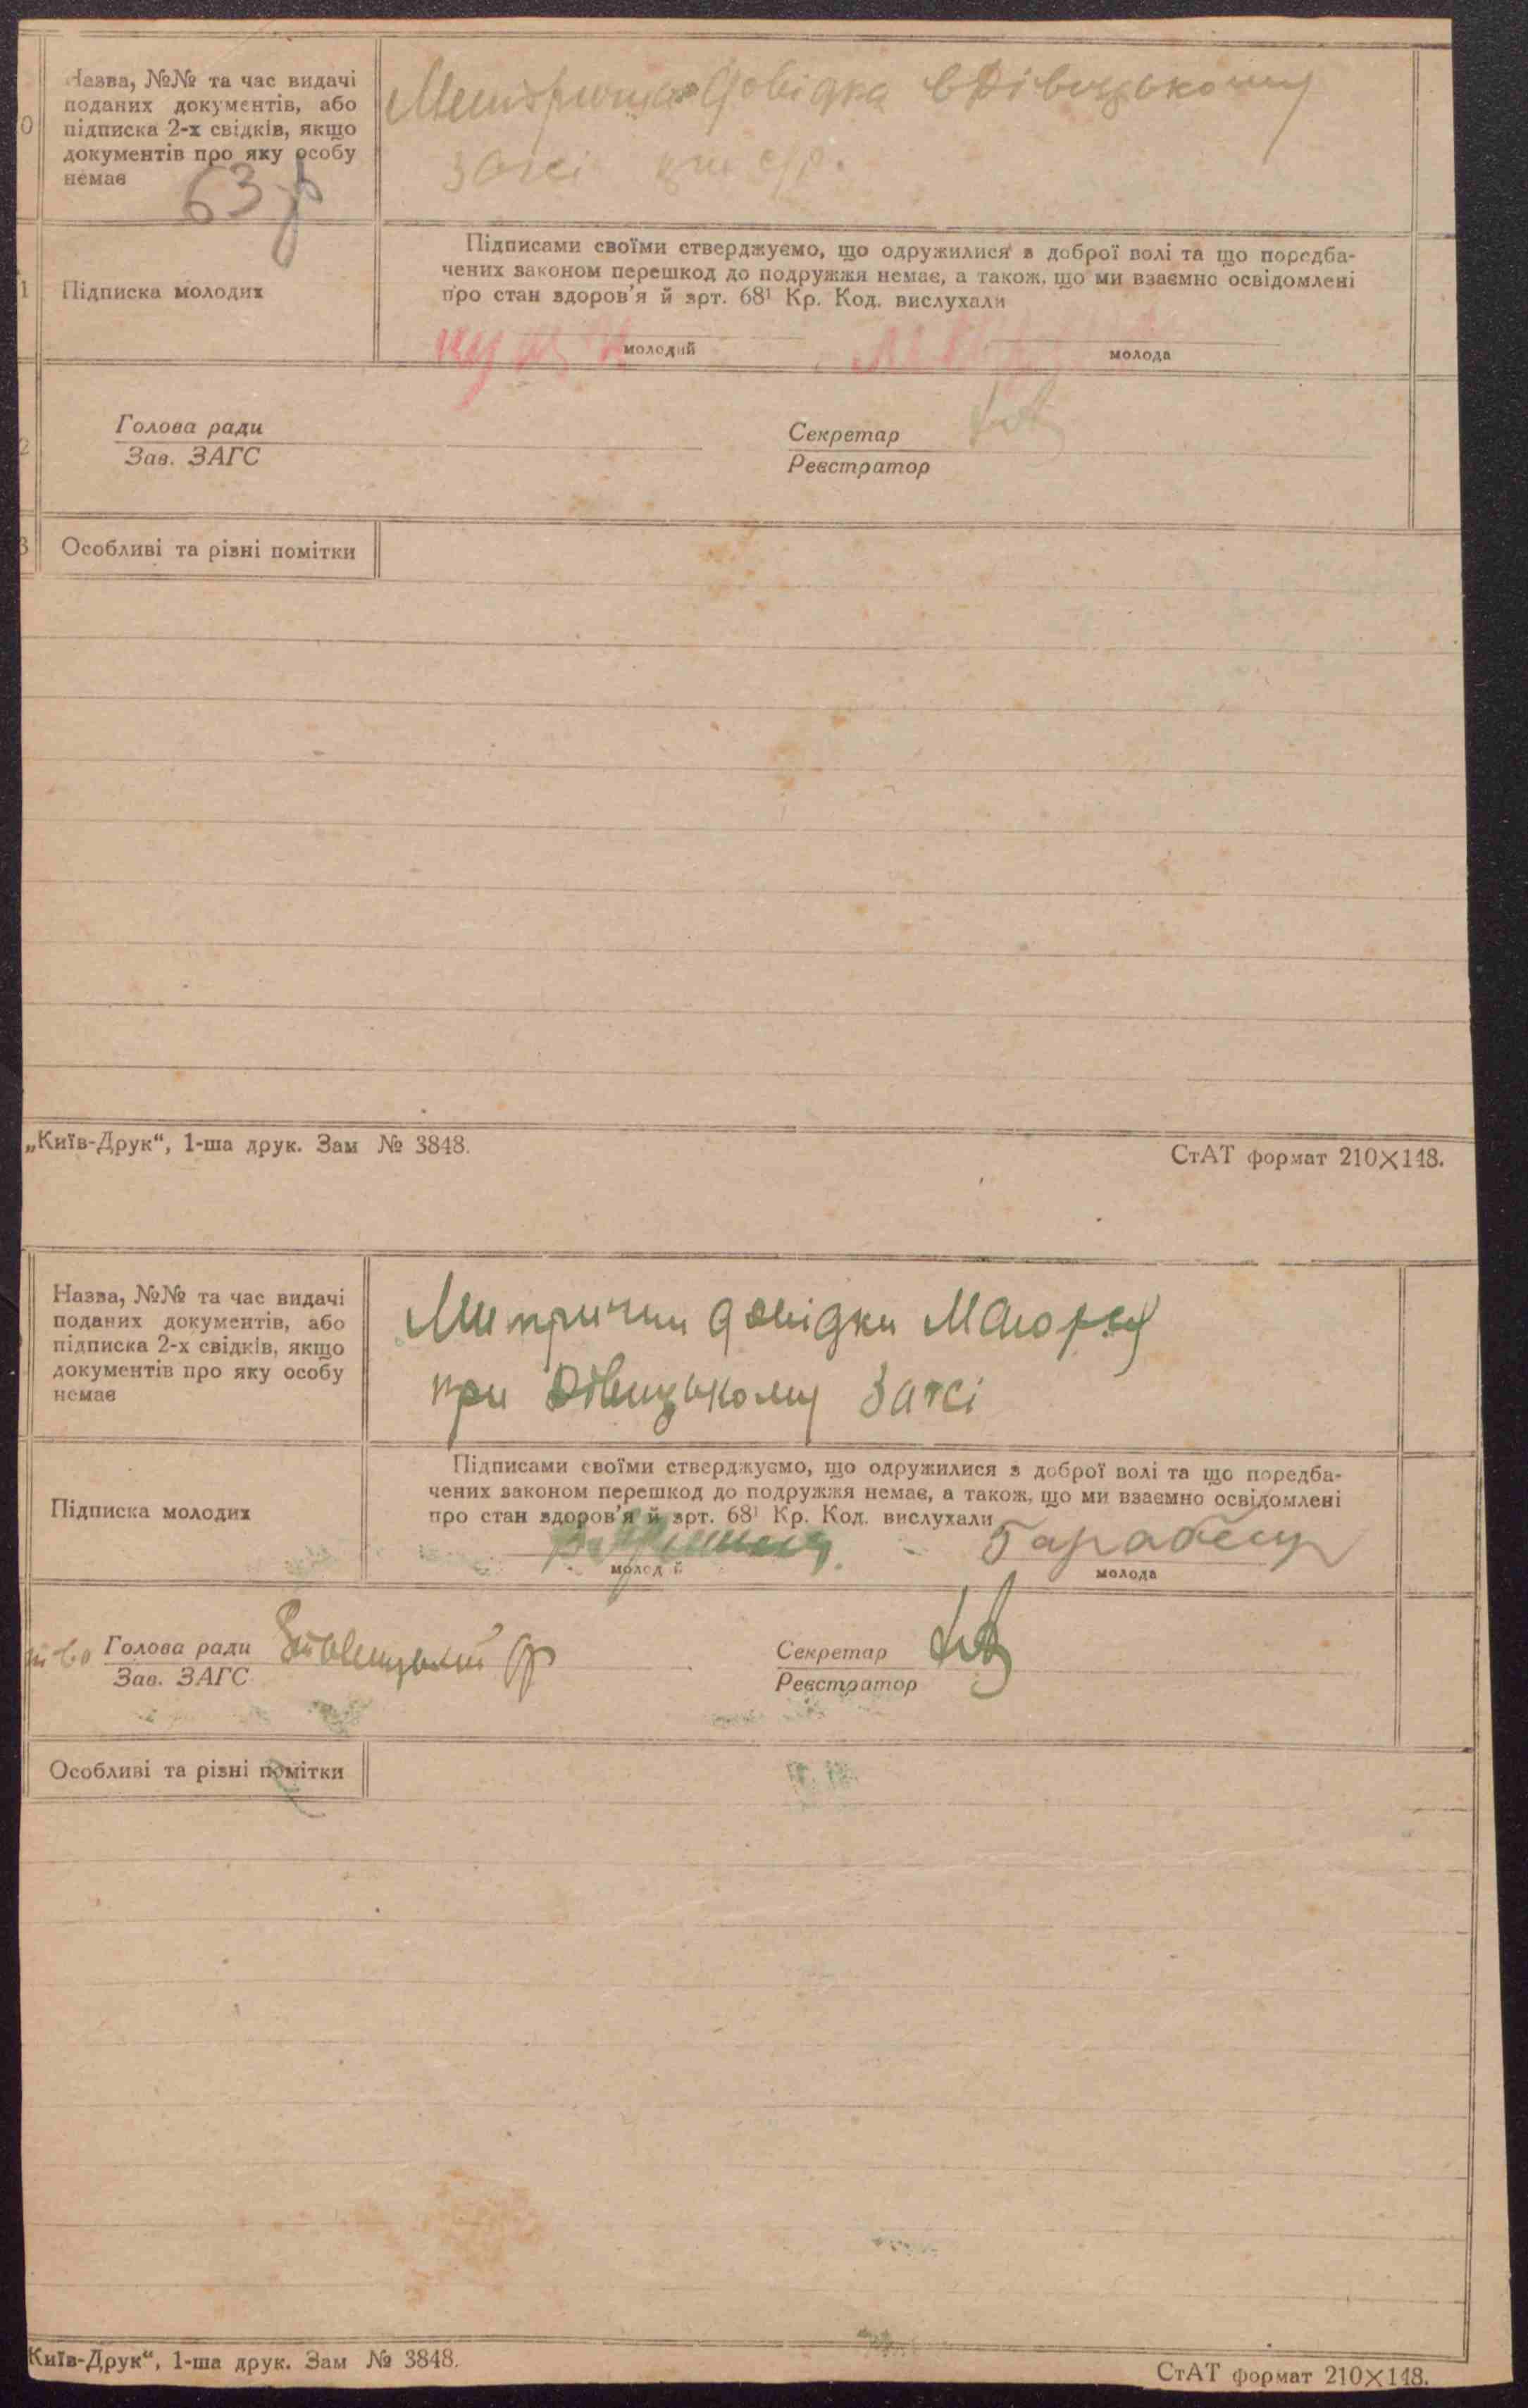 Назва, №№ та час видачі
поданих документів, або
0 підписка 2-х свідків, якщо
документів про яку особу
немає
63 р
довідка в Дівицькому
загсі при с/р.
Підписами своїми стверджуємо, що одружилися з доброї волі та що передба-
чених законом перешкод до подружжя немає, а також, що ми взаємно освідомлені
про стан здоров'я й арт. 68¹ Кр. Код. вислухали
1 Підписка молодих
молодий молода
2 Голова ради
Зав. ЗАГС
Секретар
Реєстратор
3 Особливі та різні помітки
„Київ-Друк“, 1-ша друк. Зам № 3848.
СтАТ формат 210×148.
Назва, №№ та час видачі
поданих документів, або
підписка 2-х свідків, якщо
документів про яку особу
немає
Митрични довідки
при Дівицькому Загсі
Підписами своїми стверджуємо, що одружилися з доброї волі та що передба-
чених законом перешкод до подружжя немає, а також, що ми взаємно освідомлені
про стан здоров'я й арт. 68¹ Кр. Код. вислухали
Підписка молодих
молодий молода
Голова ради
Зав. ЗАГС
Секретар
Реєстратор
Особливі та різні помітки
Київ-Друк“, 1-ша друк. Зам № 3848.
СтАТ формат 210×148.